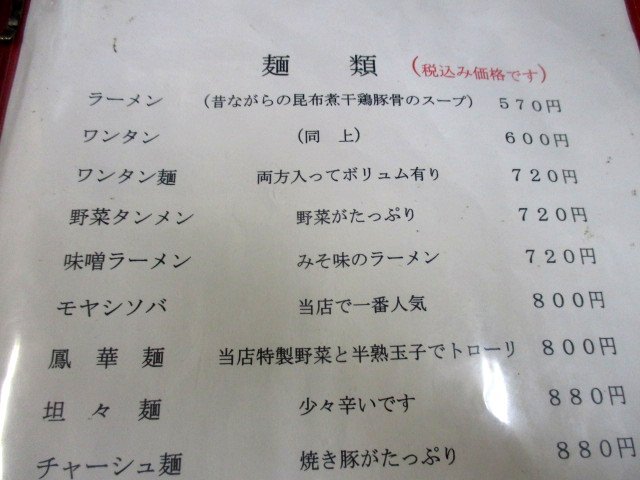 麺 類 (税込み価格です)
ラーメン (昔ながらの昆布煮干鶏豚骨のスープ) 570円
ワンタン (同 上) 600円
ワンタン麺 両方入ってボリュム有り 720円
野菜タンメン 野菜がたっぷり 720円
味噌ラーメン みそ味のラーメン 720円
モヤシソバ 当店で一番人気 800円
鳳 華 麺 当店特製野菜と半熟玉子でトローリ 800円
坦 々 麺 少々辛いです 880円
チャーシュ麺 焼き豚がたっぷり 880円